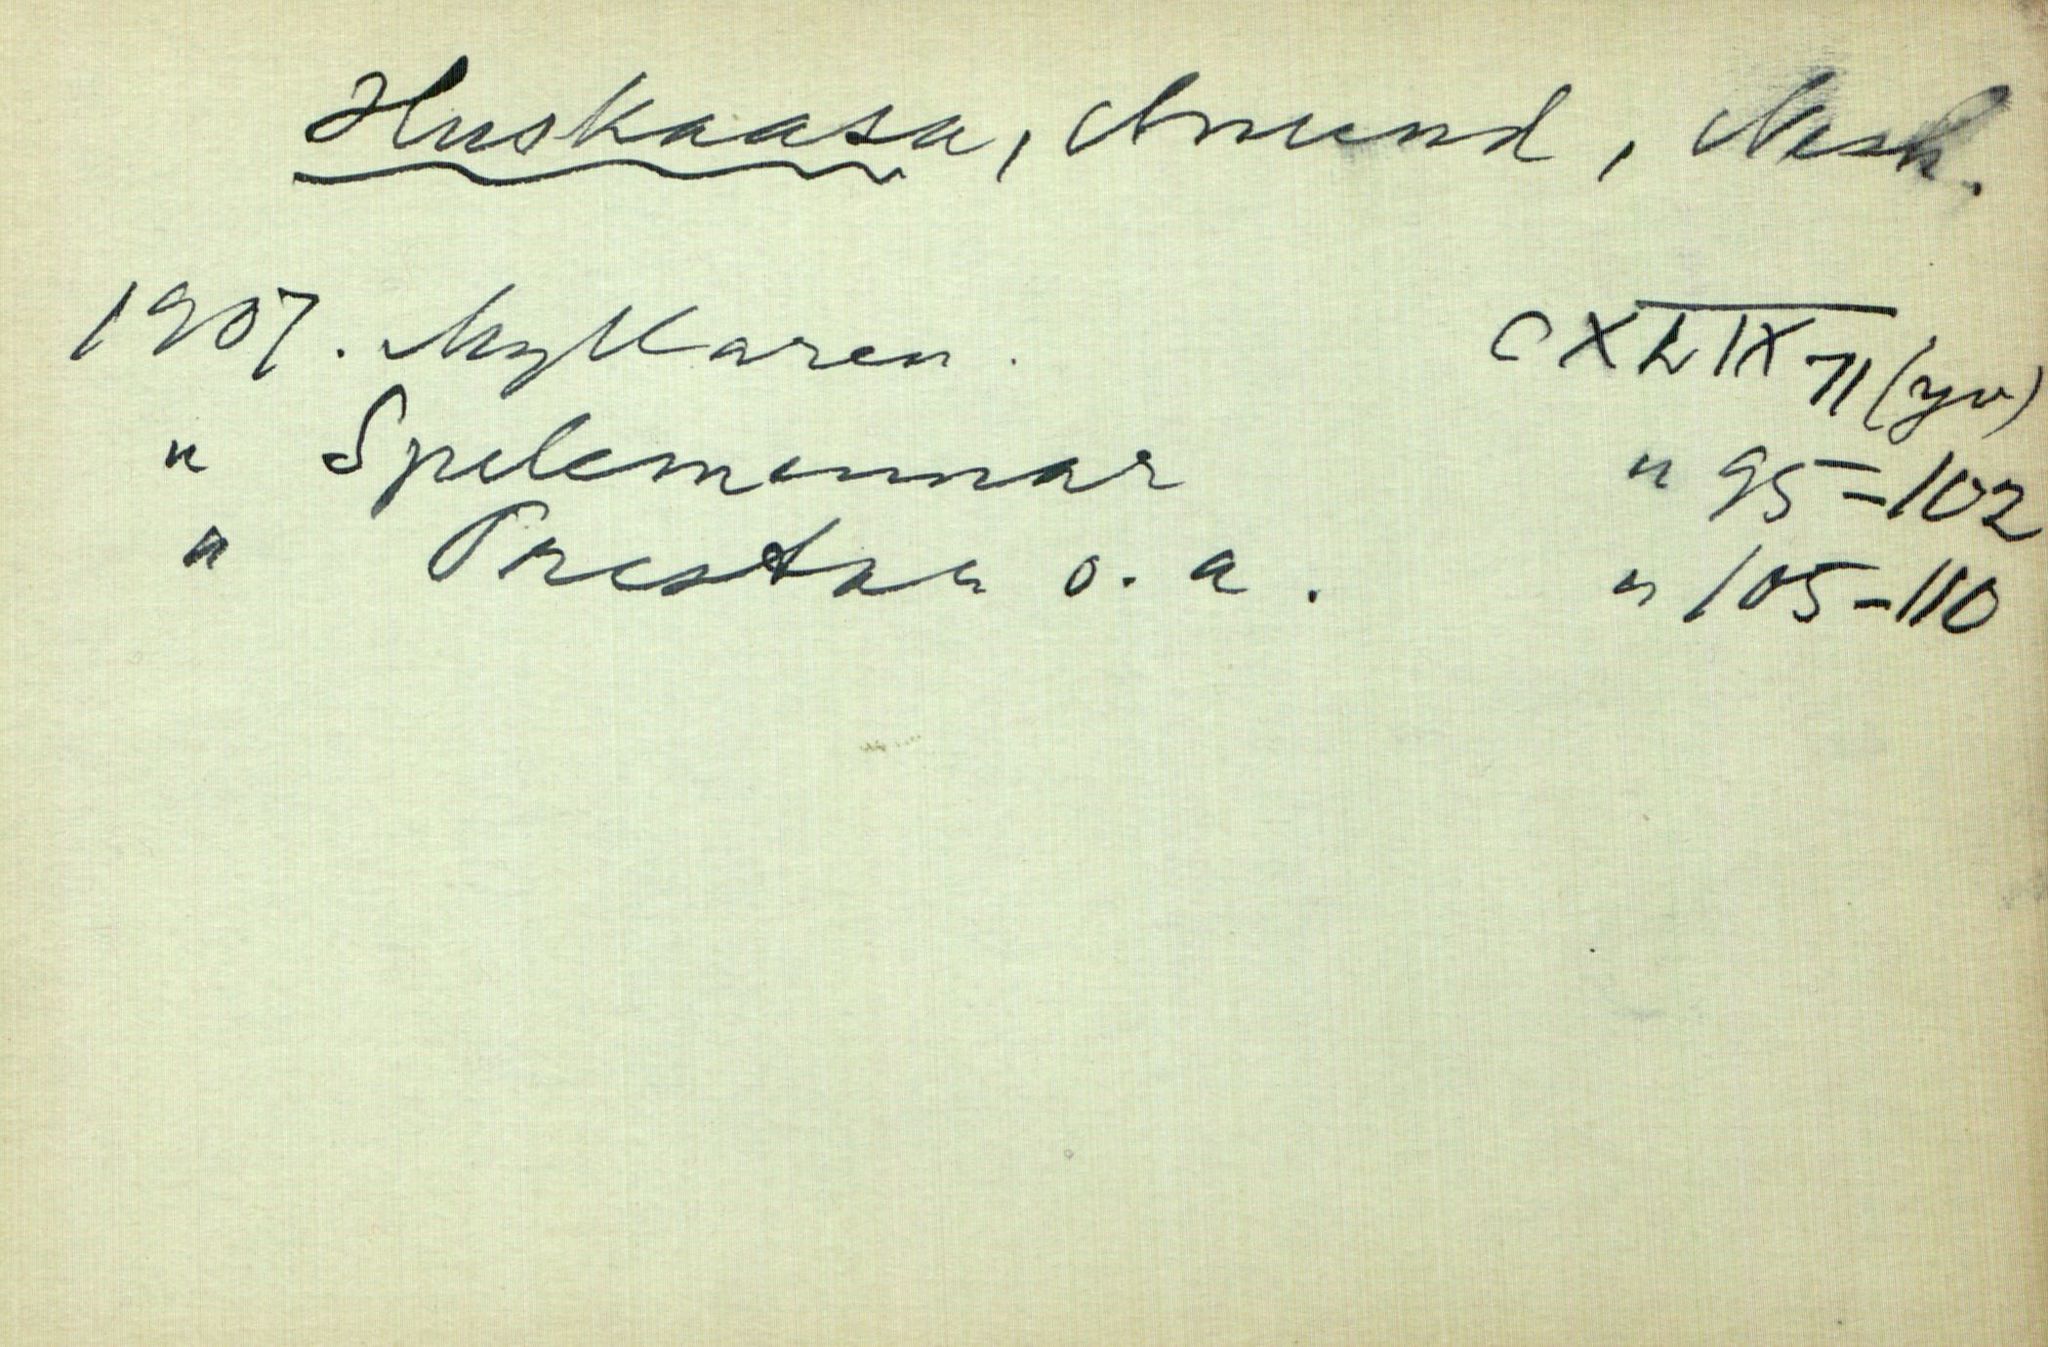 Huskaasa, Amund, Nesh.
1907. Myllaren. CXLIX 71 (yv)
" Spelemannar " 95-102
" Prestar o. a. " 105-110